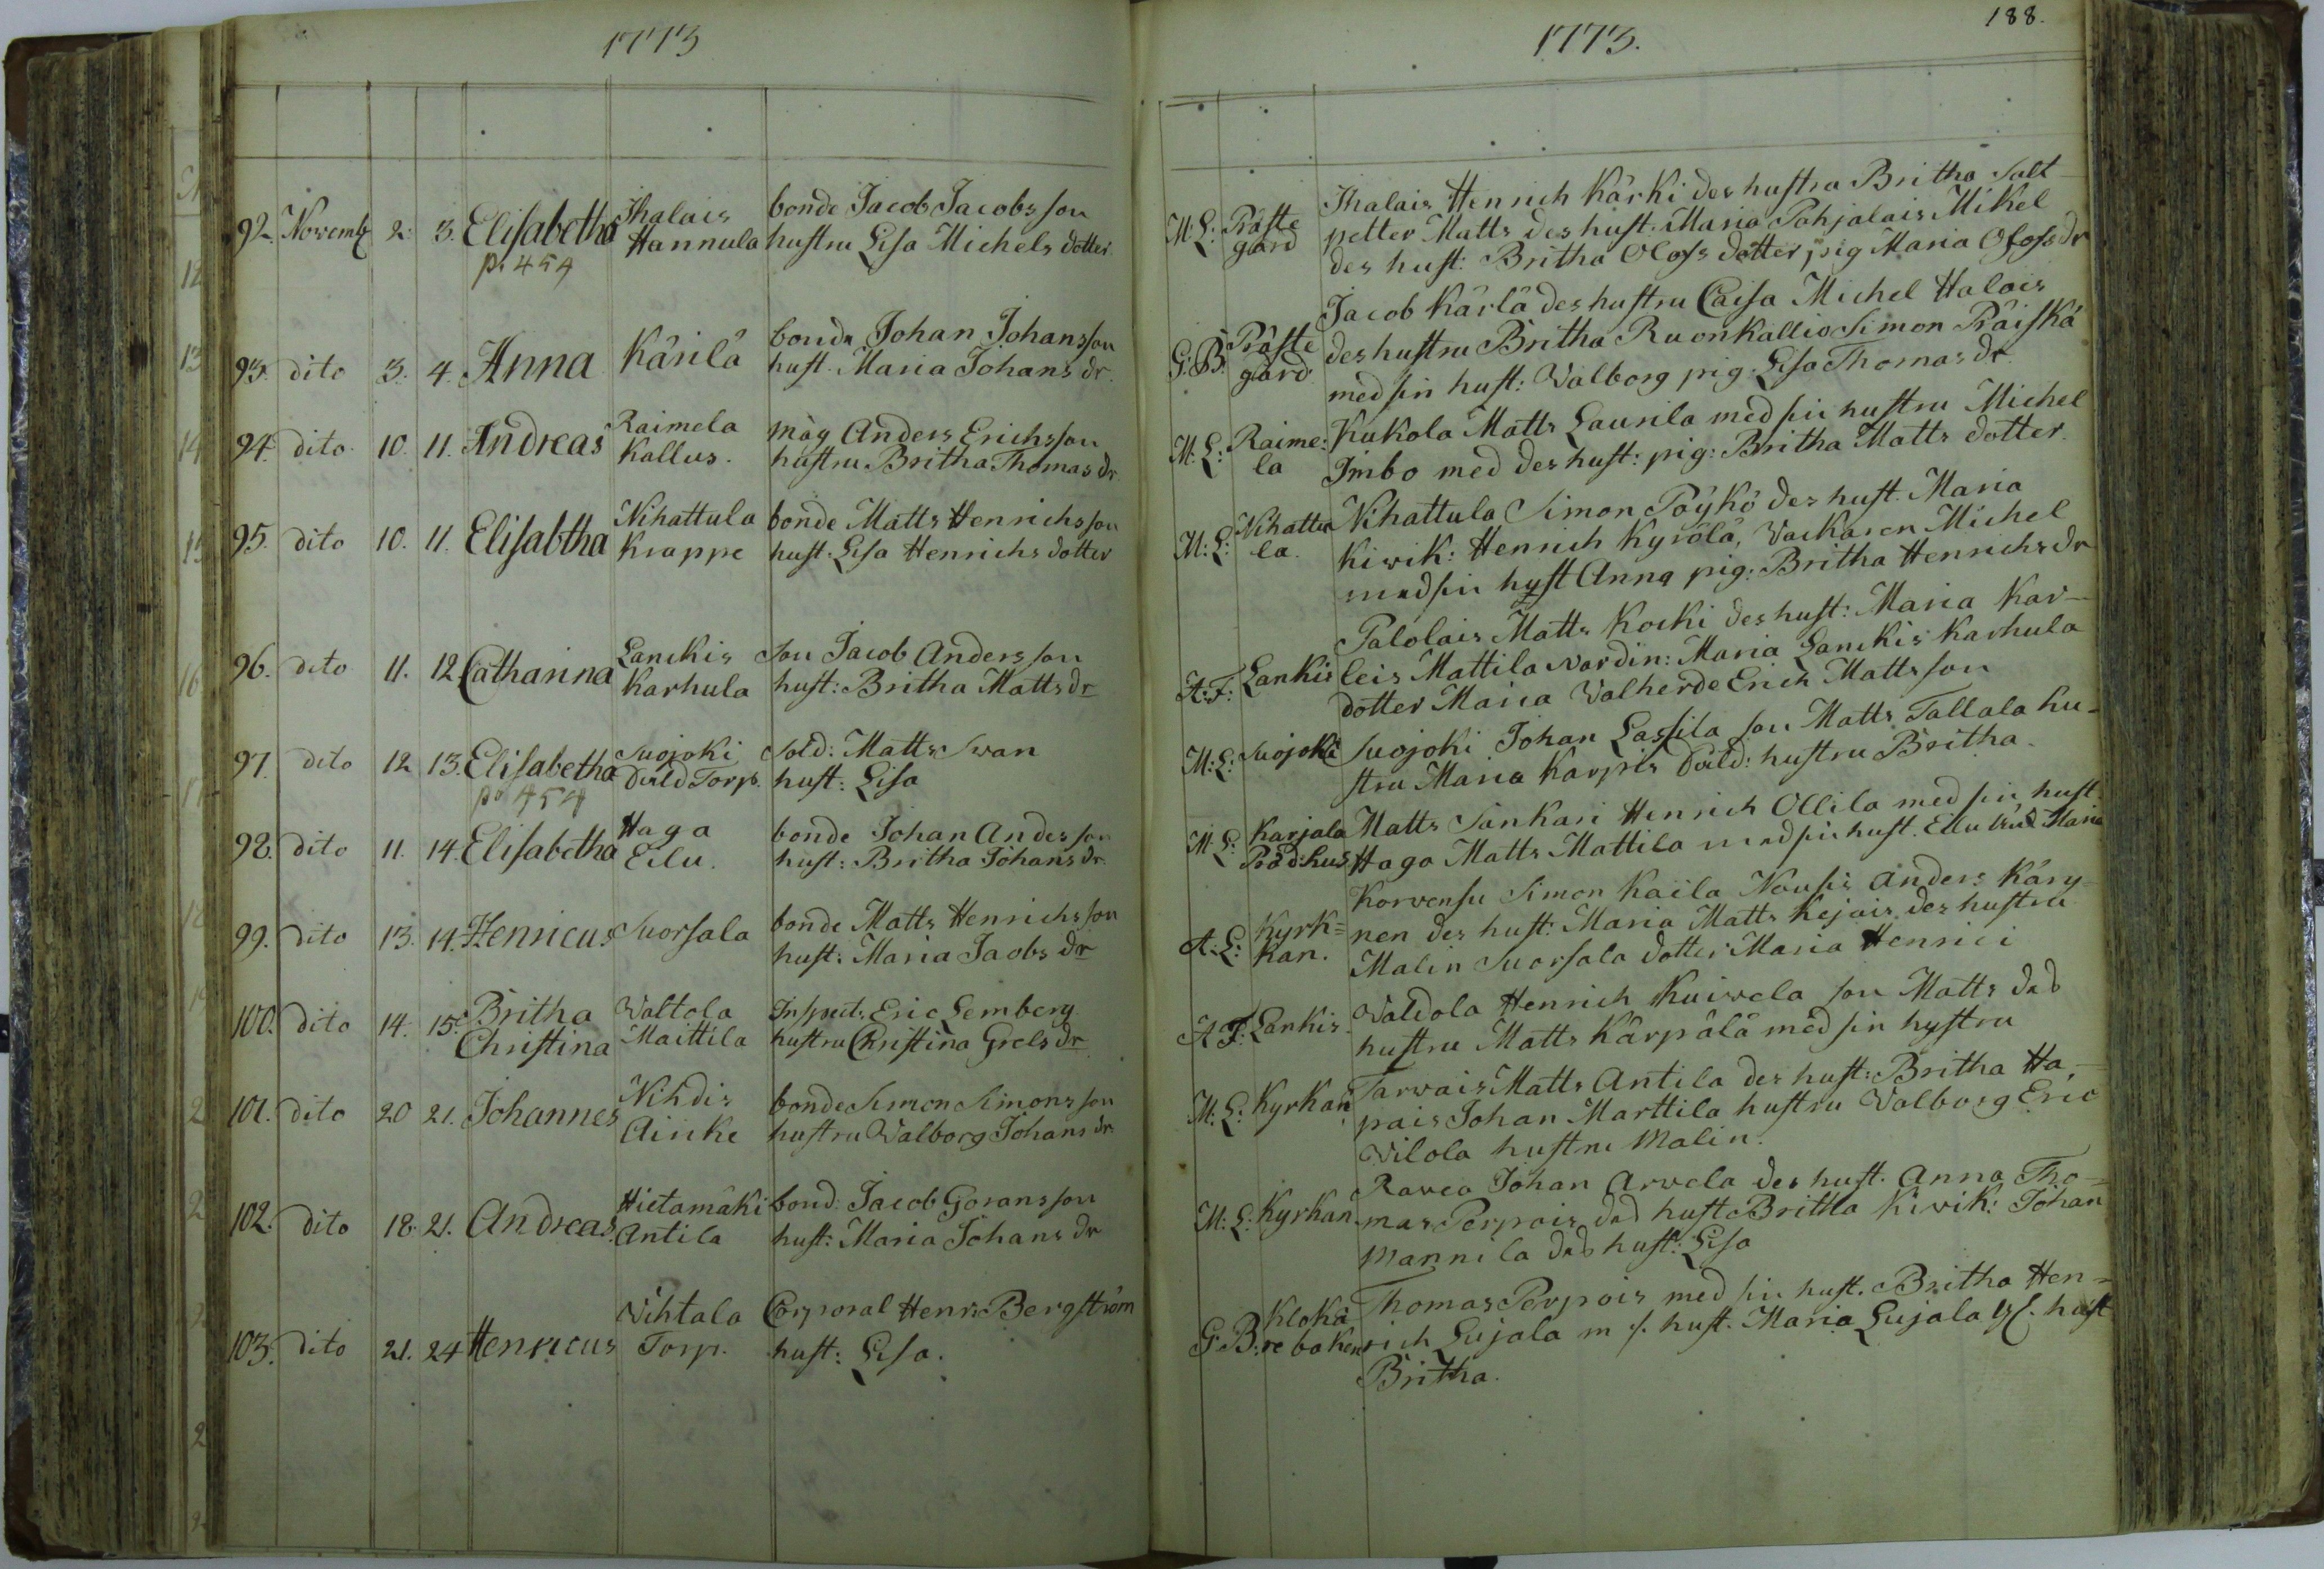 1773
92. Novemb 2. 3. Elisabetha Ihalais bonde Jacob Jacobs son
Hannula hustru Lisa Michels dotter
p. 454
93. dito 3. 4. Anna Kärilä bonde Johan Johansson
hust. Maria Johans dr.
94. dito 10. 11. Andreas Raimela måg Anders Erichsson
Kallus. hustru Britha Thomas dr
95. dito 10. 11. Elisabtha Nihattula bonde Matts Henrichsson
Krappe hust. Lisa Henrichs dotter
96. dito 11. 12. Catharina Lanckis son Jacob Andersson
Karhula hust: Britha Matts dr
97. dito 12 13. Elisabetha Suojoki Sold: Matts Swan
Torp. hust: Lisa
p. 454
98. dito 11. 14. Elisabetha Haga bonde Johan Andersson
Eilu. hust: Britha Johans dr.
99. dito 13. 14. Henricus Suorsala bonde Matts Henrichsson
hust: Maria Jacobs dr
100. dito 14. 15. Britha Waltola Inspect. Eric Lemberg
Christina Maittila hustru Christina Grels dr
101. dito 20 21. Johannes Nihdis bonde Simon Simonsson
Ainke hustru Walborg Johans dr.
102. dito 18. 21. Andreas. Hietamäki bond: Jacob Goransson
Antila hust: Maria Johans dr
103. dito 21. 24 Henricus Wihtala Corporal Henr: Bergström
Torp. hust: Lisa.
1773.
188.
Ihalais Henrich Kärki des hustra Britha Salt
M: L: Präste petter Matts des hust. Maria Pohjalais Mikel
gård des hust: Britha Olofs dotter, pig Maria Olofs dr
Jacob Kärlä des hustru Caisa Michel Halois
G: B: Präste des hustru Britha Ruonkallio Simon Präiskä
gård med sin hust: Walborg pig. Lisa Thomas dr.
M: L: Raime: Kukola Matts Laurila med sin hustru Michel
la Imbo med des hust: pig: Britha Matts dotter.
M: L: Nihattu Nihattula Simon Pöykö des hust. Maria
la. Kiwik: Henrich Kyrölä, Wackaren Michel
med sin hust Anna pig: Britha Henrichs dr
Palolais Matts Kocki des hust: Maria Kar-
A: F: Lankis leis Mattila Nordin: Maria Lanckis Karhula
dotter Maria Walherde Erich Mattsson
M: L: Suojoki Suojoki Johan Lassila son Matts Tallala hu-
stru Maria Karpis hustru Britha.
M: L: Karjala Matts Sankari Henrich Ollila med sin hust
Prädhus Haga Matts Mattila med sin hust. Maria
Korwensu Simon Kaila Nousis Anders Käry
A: L: Kyrk= nen des hust: Maria Matts Kejois des hustru
kan. Malin Suorsala dotter Maria Henrici
A F: Lankis. Waldola Henrich Kuiwela son Matts des
hustru Matts Kärpälä med sin hustru
M: L: Kyrkan Tarwais Matts Antila des hust: Britha Ha-
pais Johan Marttila hustru Walborg Eric
Wilola hustru Malin.
Rawea Johan Arwela des hust. Anna Tho-
M: L: Kyrkan mas Perpois des hust Britha Kiwik: Johan
Mannila des hust: Lisa
Kloka Thomas Perpois med sin hust. Britha Hen-
G: B: re boken rich Lujala m s. hust. Maria Lujala hust
Britha.